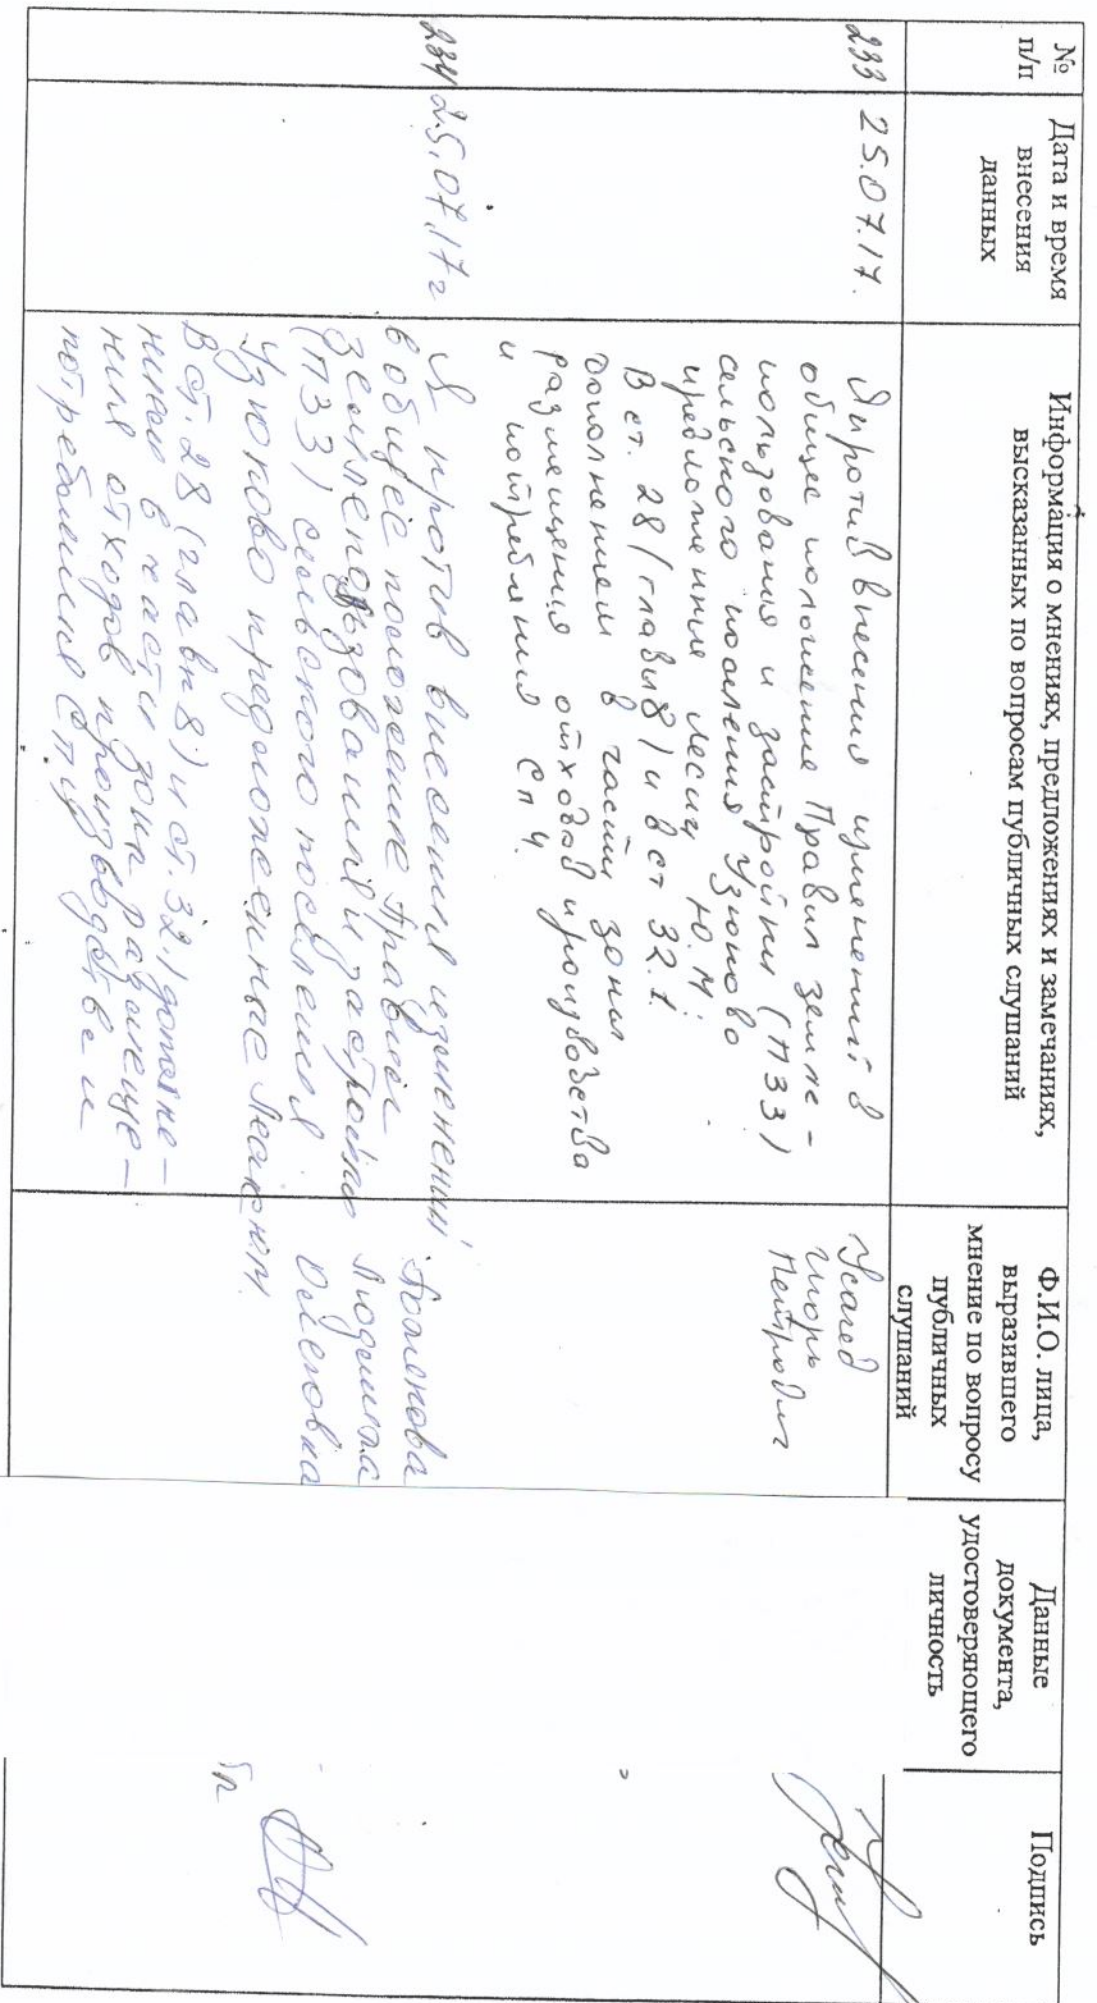 №
п/п
Дата и время
внесения
данных
Информация о мнениях, предложениях и замечаниях,
высказанных по вопросам публичных слушаний
Ф.И.О. лица,
выразившего
мнение по вопросу
публичных
слушаний
Данные
документа,
удостоверяющего
личность
Подпись
233
25.07.17.
Я против внесения изменений в
общие положения Правил земле-
пользования и застройки (ПЗЗ)
сельского поселения Узюково
предложенние Ю.М.
В ст. 28 (глава 8) и в ст 32.1
дополнением в части зоны
размещения отходов производства
и потребления СП4.
Игорь
Петрович
234
25.07.17г
Я против внесения изменений
в общее положение Правил
землепользования и застройки
(ПЗЗ) сельского поселения
Узюково предложенные
В ст. 28 (глава 8) и ст. 32.1 дополне-
ниям в части зоны размеще-
ния отходов производства и
потребления
Людмила